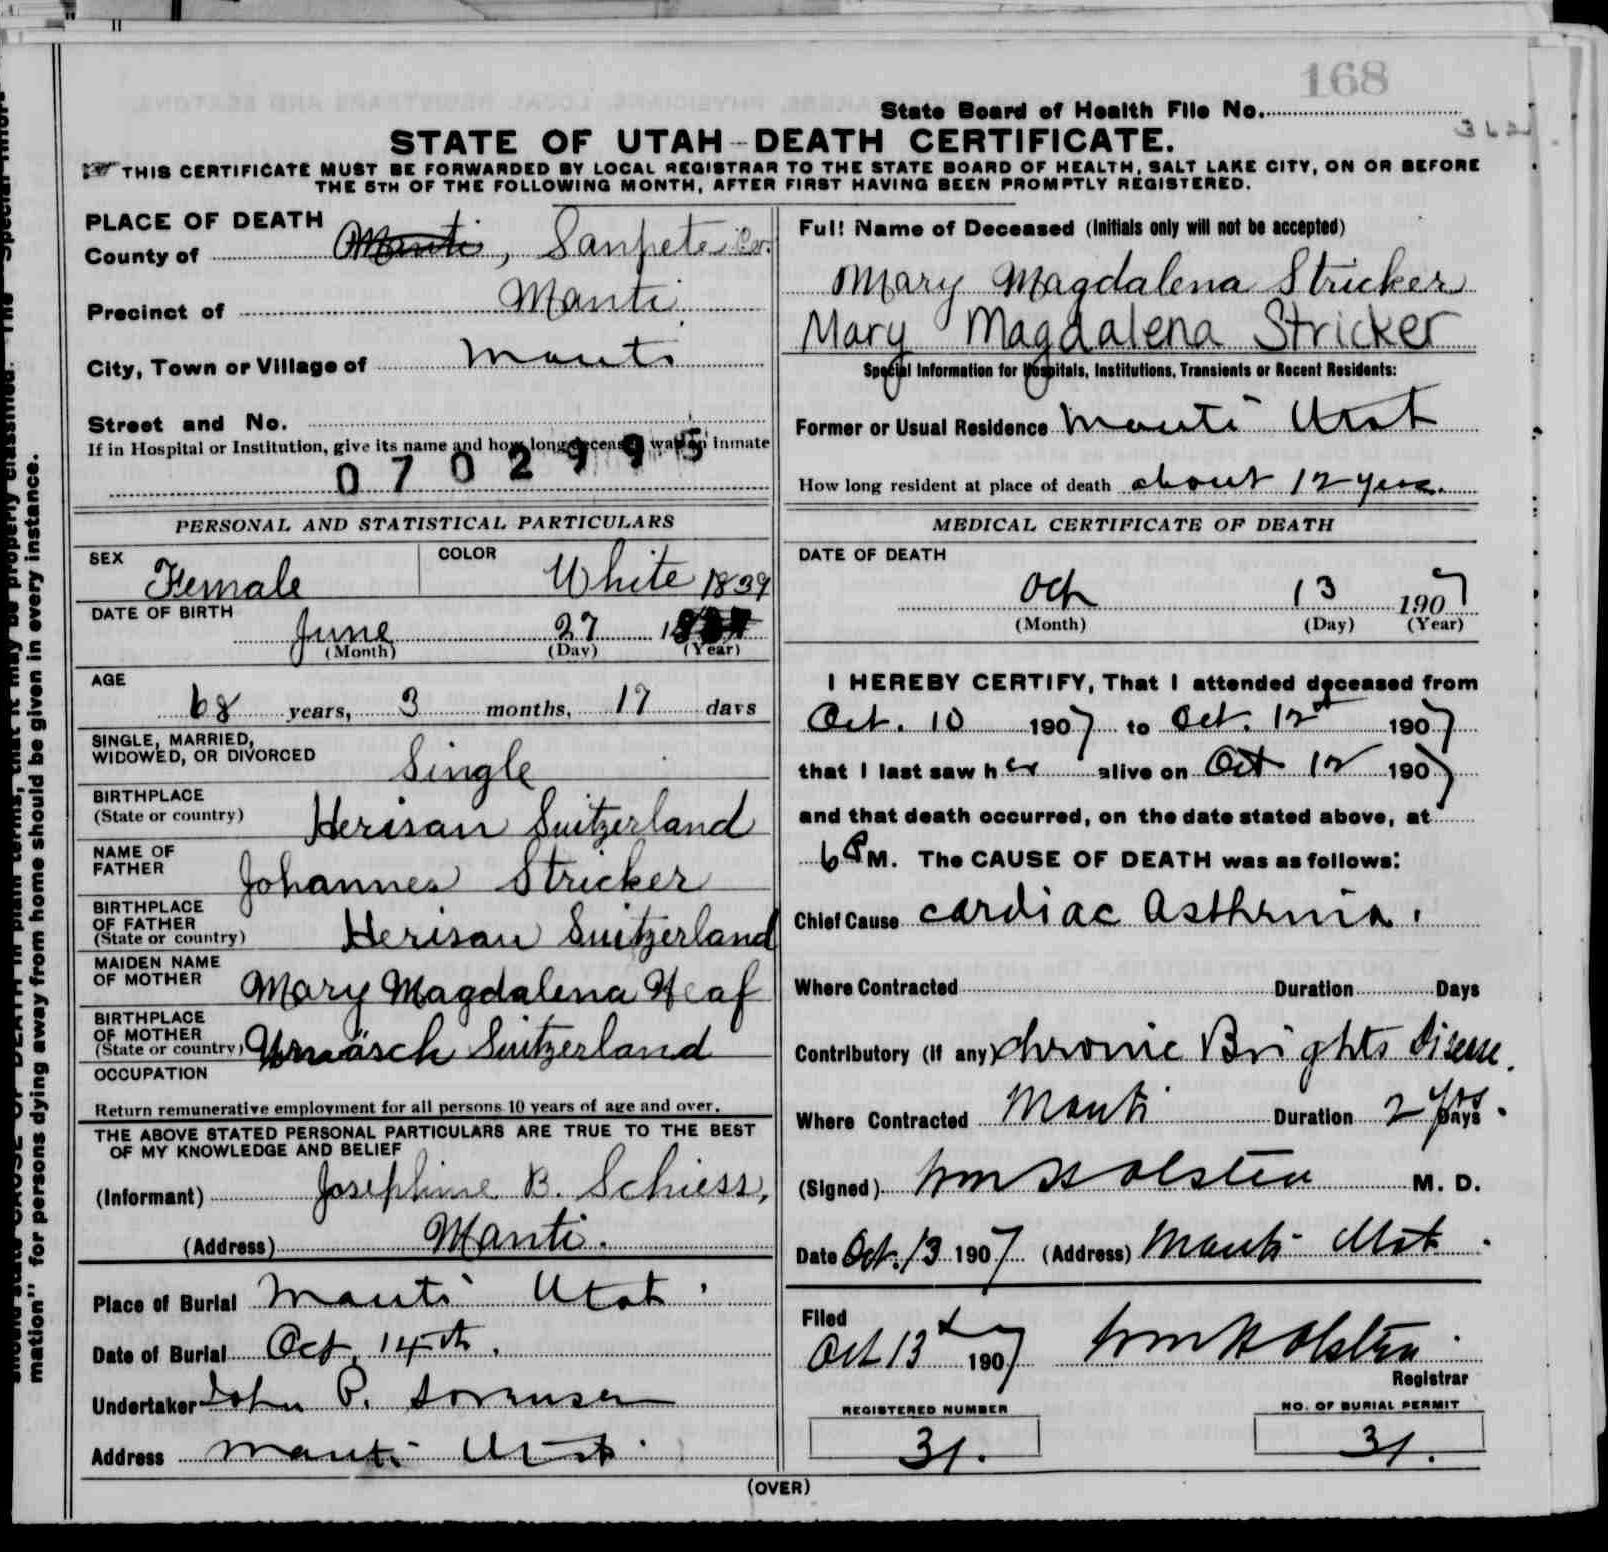 168
State Board of Health File No.
362
STATE OF UTAH—DEATH CERTIFICATE.
THIS CERTIFICATE MUST BE FORWARDED BY LOCAL REGISTRAR TO THE STATE BOARD OF HEALTH, SALT LAKE CITY, ON OR BEFORE
THE 5TH OF THE FOLLOWING MONTH, AFTER FIRST HAVING BEEN PROMPTLY REGISTERED.
PLACE OF DEATH
County of Manti, Sanpete Co.
Precinct of Manti
City, Town or Village of Manti
Street and No.
If in Hospital or Institution, give its name and how long deceased was an inmate
0702995
PERSONAL AND STATISTICAL PARTICULARS
SEX Female COLOR White 1839
DATE OF BIRTH
June 27 18
(Month) (Day) (Year)
AGE
68 years, 3 months, 17 days
SINGLE, MARRIED,
WIDOWED, OR DIVORCED Single
BIRTHPLACE
(State or country) Herisau Switzerland
NAME OF
FATHER Johannes Stricker
BIRTHPLACE
OF FATHER
(State or country) Herisau Switzerland
MAIDEN NAME
OF MOTHER Mary Magdalena Neaf
BIRTHPLACE
OF MOTHER
(State or country) Urnäsch Switzerland
OCCUPATION
Return remunerative employment for all persons 10 years of age and over.
THE ABOVE STATED PERSONAL PARTICULARS ARE TRUE TO THE BEST
OF MY KNOWLEDGE AND BELIEF
(Informant) Josephine B. Schiess,
(Address) Manti.
Place of Burial Manti Utah.
Date of Burial Oct. 14th.
Undertaker John P. Sorensen
Address Manti Utah.
Full Name of Deceased (Initials only will not be accepted)
Mary Magdalena Stricker
Mary Magdalena Stricker
Special Information for Hospitals, Institutions, Transients or Recent Residents:
Former or Usual Residence Manti Utah
How long resident at place of death about 12 years.
MEDICAL CERTIFICATE OF DEATH
DATE OF DEATH
Oct 13 1907
(Month) (Day) (Year)
I HEREBY CERTIFY, That I attended deceased from
Oct. 10 1907 to Oct. 12 1907
that I last saw her alive on Oct 12 1907
and that death occurred, on the date stated above, at
6 P M. The CAUSE OF DEATH was as follows:
Chief Cause Cardiac Asthmia.
Where Contracted Duration Days
Contributory (If any) Chronic Brights Disease.
Where Contracted Manti Duration 2 yrs. Days
(Signed) Wm H Olsten M. D.
Date Oct. 13 1907 (Address) Manti Utah.
Filed
Oct 13 1907 Wm H Olsten.
Registrar
REGISTERED NUMBER
31.
NO. OF BURIAL PERMIT
31.
(OVER)
mation" for persons dying away from home should be given in every instance.